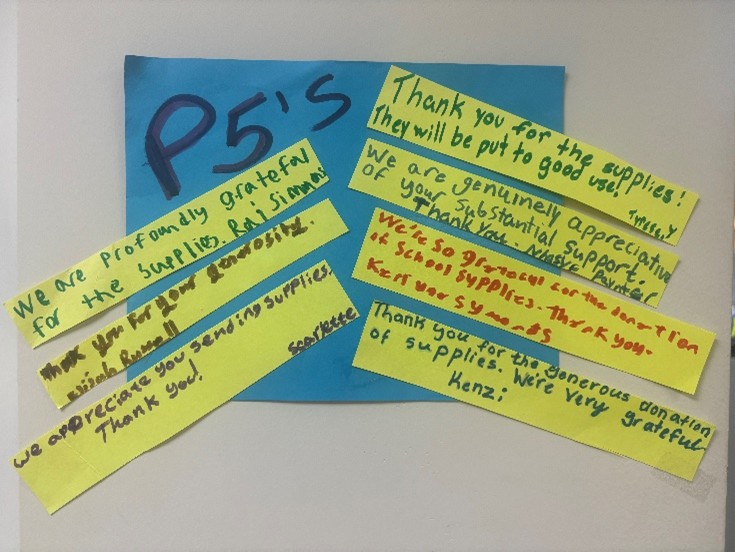 P5's
We are profoundly grateful
for the supplies. Raj Simmons
Thank you for your generosity.
Elijah Russell
We appreciate you sending supplies.
Thank you! Scarlette
Thank you for the supplies!
They will be put to good use!
We are genuinely appreciative
of your substantial support.
Thank you.
We're so grateful for the donation
of school supplies. Thank you.
Thank you for the generous donation
of supplies. We're very grateful
Kenzi